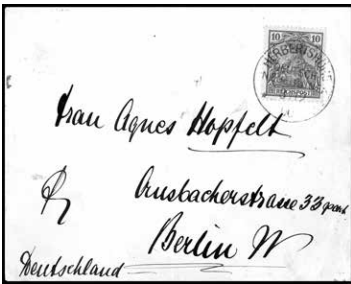 10 10
HERBERTSHÖHE
Frau Agnes Hopfelt
Ansbacherstrasse 33 part
Berlin W
Deutschland